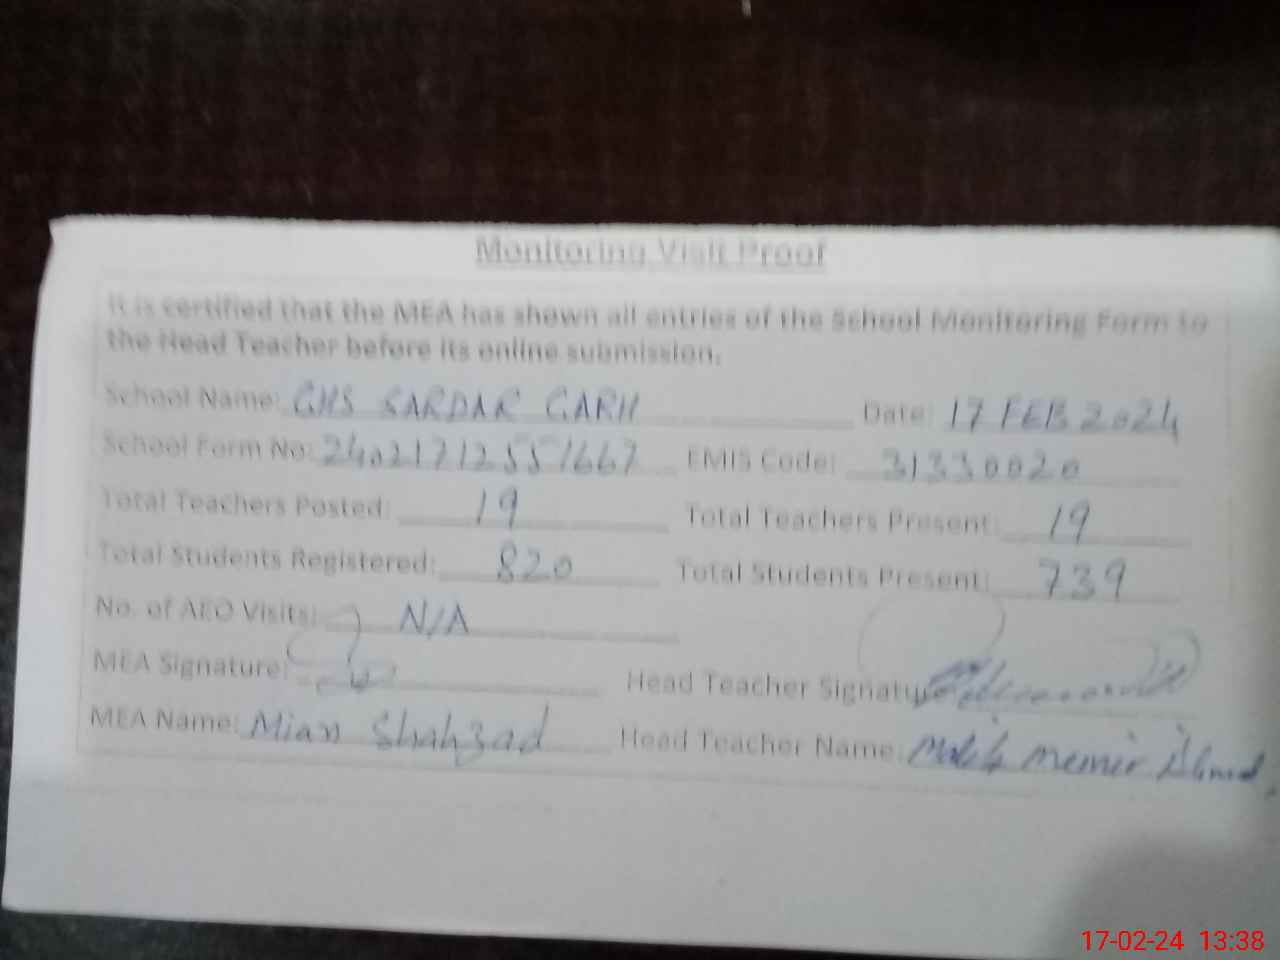 Monitoring Visit Proof
It is certified that the MEA has shown all entries of the School Monitoring Form to
the Head Teacher before its online submission.
School Name: GHS SARDAR GARH Date: 17 FEB 2024
School Form No: 240217125551667 EMIS Code: 31330020
Total Teachers Posted: 19 Total Teachers Present: 19
Total Students Registered: 820 Total Students Present: 739
No. of AEO Visits: N/A
MEA Signature: Head Teacher Signature
MEA Name: Mian Shahzad Head Teacher Name: Malik Ahmad
17-02-24 13:38